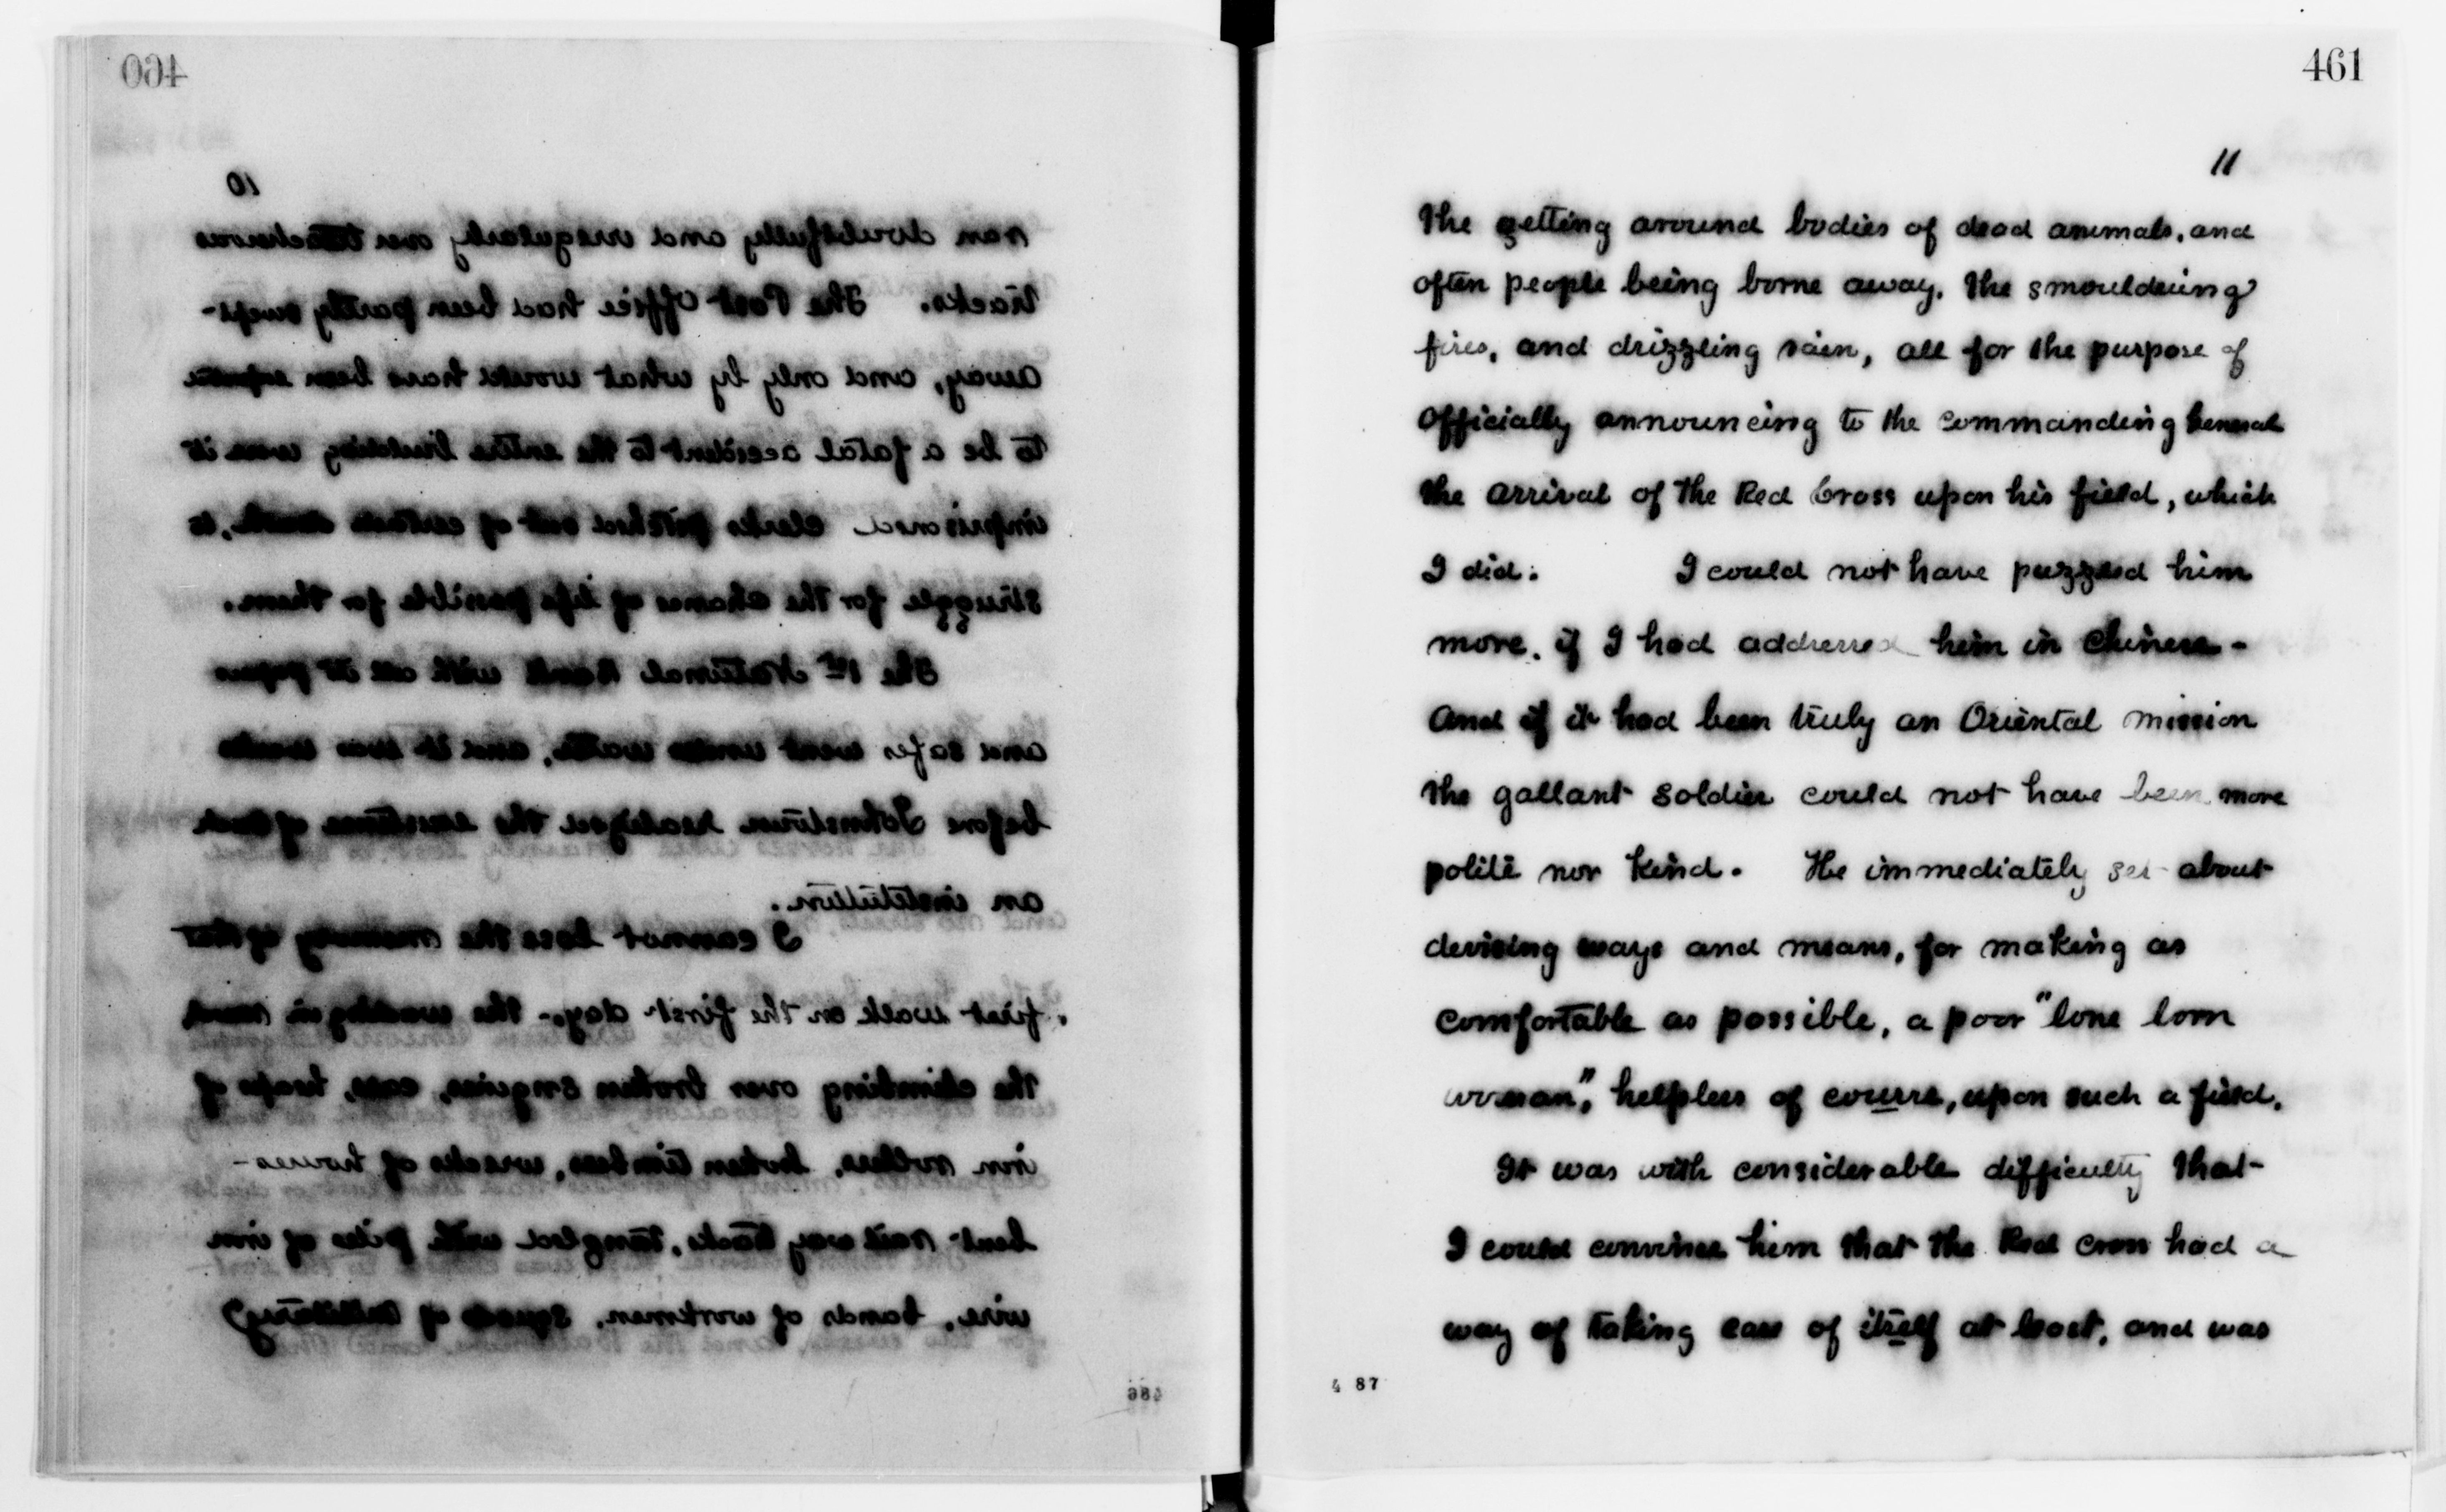 460
10
ran doubtfully and irregularly over treacherous
tracks. The Post Office had been partly swept
away, and only by what would have been
to be a fatal accident to the entire building were it
imprisoned clerks pitched out of certain death, to
struggle for the chance of life possible for them.
The 1st National Bank with all it papers
and safes went under water, and it was weeks
before Johnstown realized the existence of such
an institution.
I cannot lose the memory of that
first walk on the first day - the wading in mud
the climbing over broken engines, cars, heaps of
iron rollers, broken timbers, wrecks of houses -
bent railway tracks, tangled with piles of iron
wire, bands of workmen, squads of military
486
461
11
the getting around bodies of dead animals, and
often people being borne away. the smouldering
fires, and drizzling rain, all for the purpose of
officially announcing to the commanding General
the arrival of the Red Cross upon his field, which
I did. I could not have puzzled him
more, if I had addressed him in Chinese -
And if it had been truly an Oriental mission
the gallant soldier could not have been more
polite nor kind. He immediately set about
devising ways and means, for making as
comfortable as possible, a poor "lone lorn
woman", helpless of course, upon such a field.
It was with considerable difficulty that
I could convince him that the Red Cross had a
way of taking care of itself at least, and was
4 87